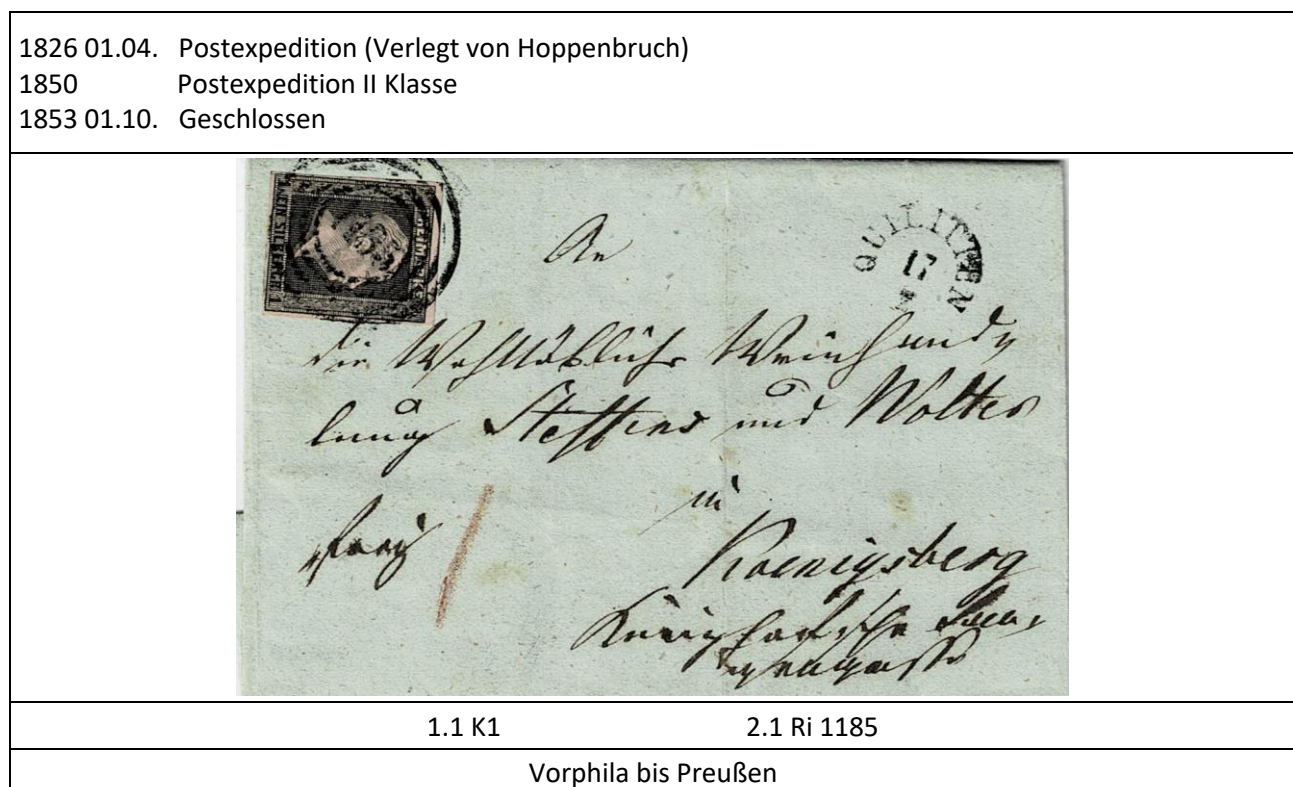 1826 01.04. Postexpedition (Verlegt von Hoppenbruch)
1850 Postexpedition II Klasse
1853 01.10. Geschlossen
An
QUILITTEN
17
die Wohllöbliche Weinhand
lung Steffens und Wolter
in
frey
Koenigsberg
Kneiphöfsche
1.1 K1 2.1 Ri 1185
Vorphila bis Preußen